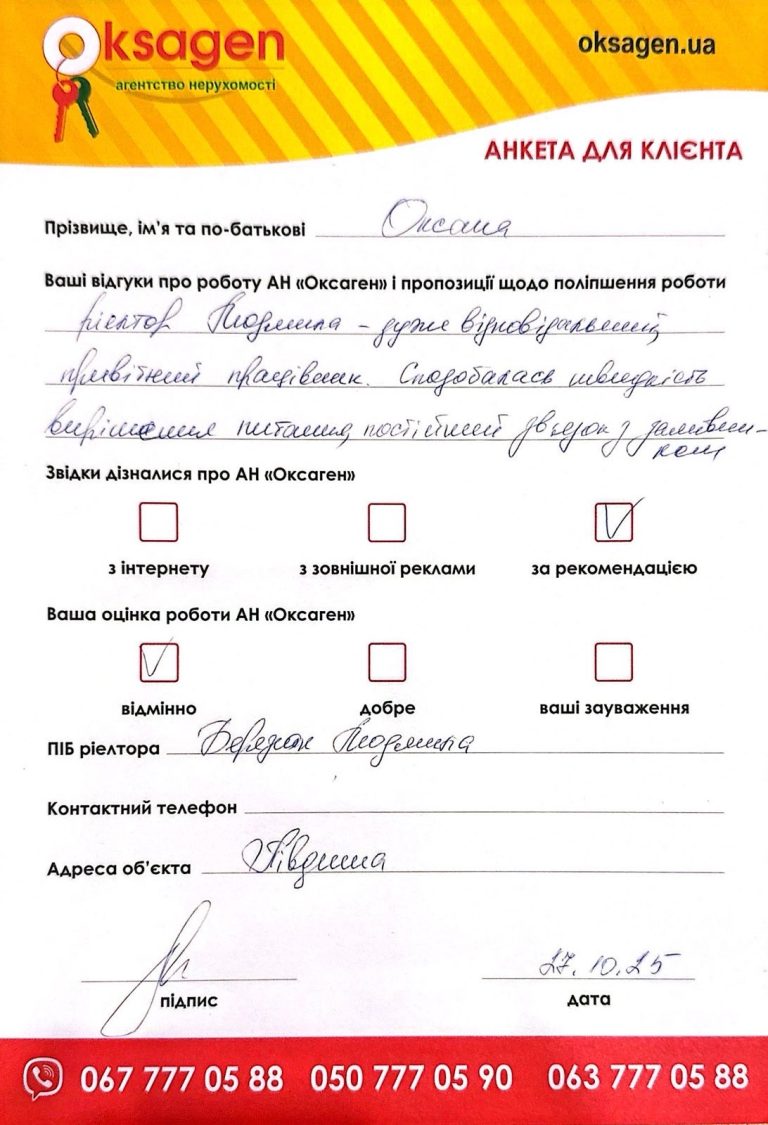 Oksagen
агентство нерухомості
oksagen.ua
АНКЕТА ДЛЯ КЛІЄНТА
Прізвище, ім'я та по-батькові Оксана
Ваші відгуки про роботу АН «Оксаген» і пропозиції щодо поліпшення роботи
рієлтор Людмила – дуже відповідальний,
привітний працівник. Сподобалась швидкість
вирішення питання, постійний зв'язок з замовни-
ком
Звідки дізналися про АН «Оксаген»
з інтернету з зовнішної реклами за рекомендацією
Ваша оцінка роботи АН «Оксаген»
відмінно добре ваші зауваження
ПІБ ріелтора Людмила
Контактний телефон
Адреса об'єкта Південна
27.10.25
підпис дата
067 777 05 88 050 777 05 90 063 777 05 88